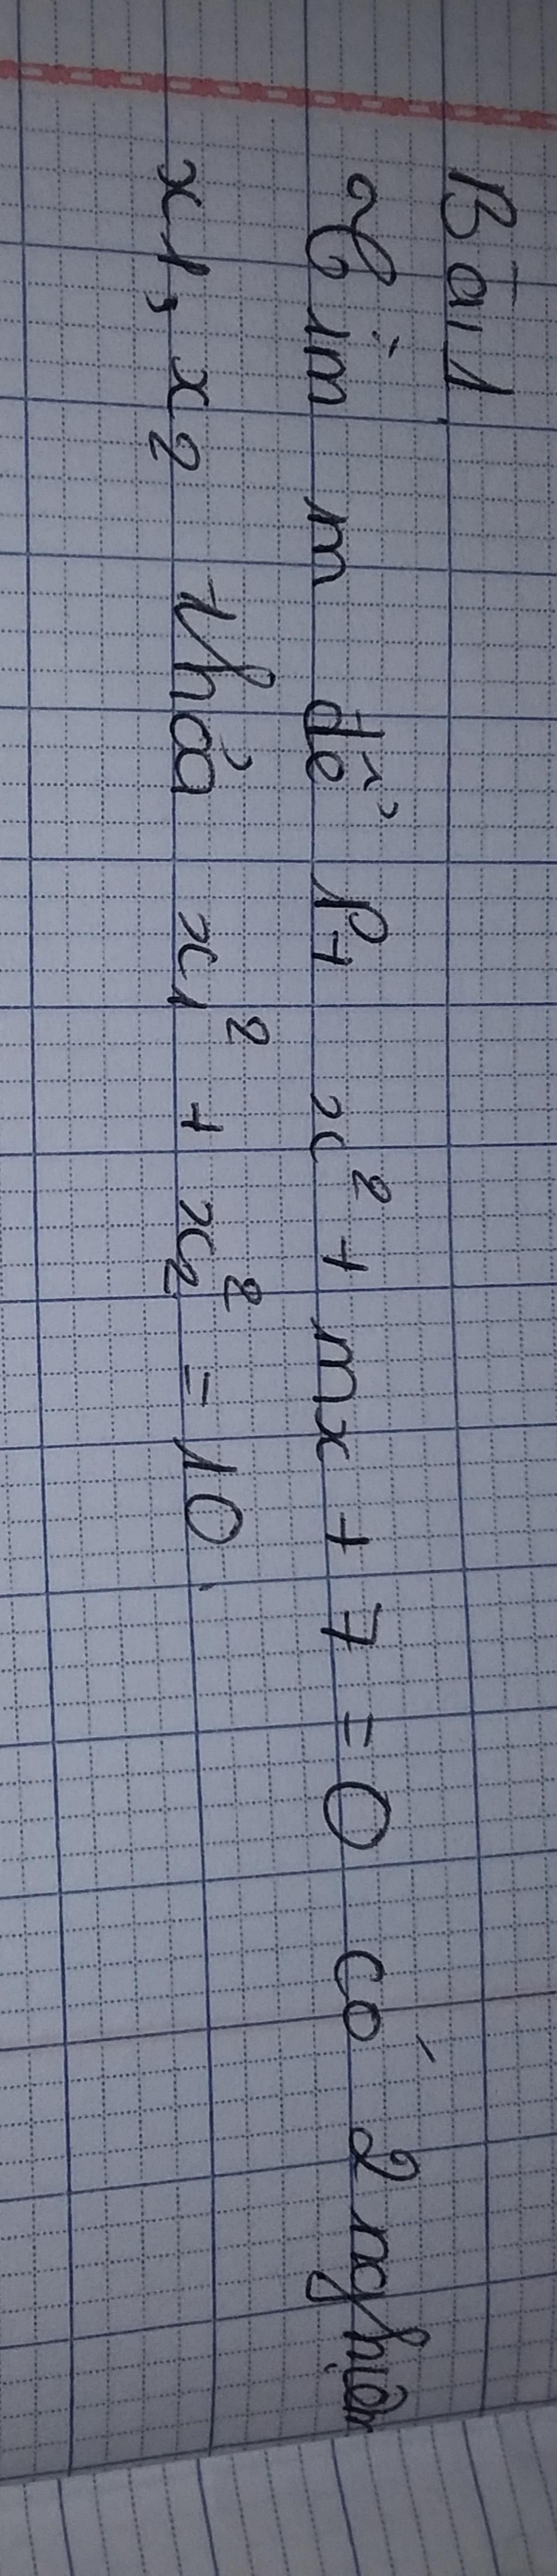 Bài 1
Tìm m để Pt x² + mx + 7 = 0 có 2 nghiệm
x1, x2 thỏa x1² + x2² = 10.